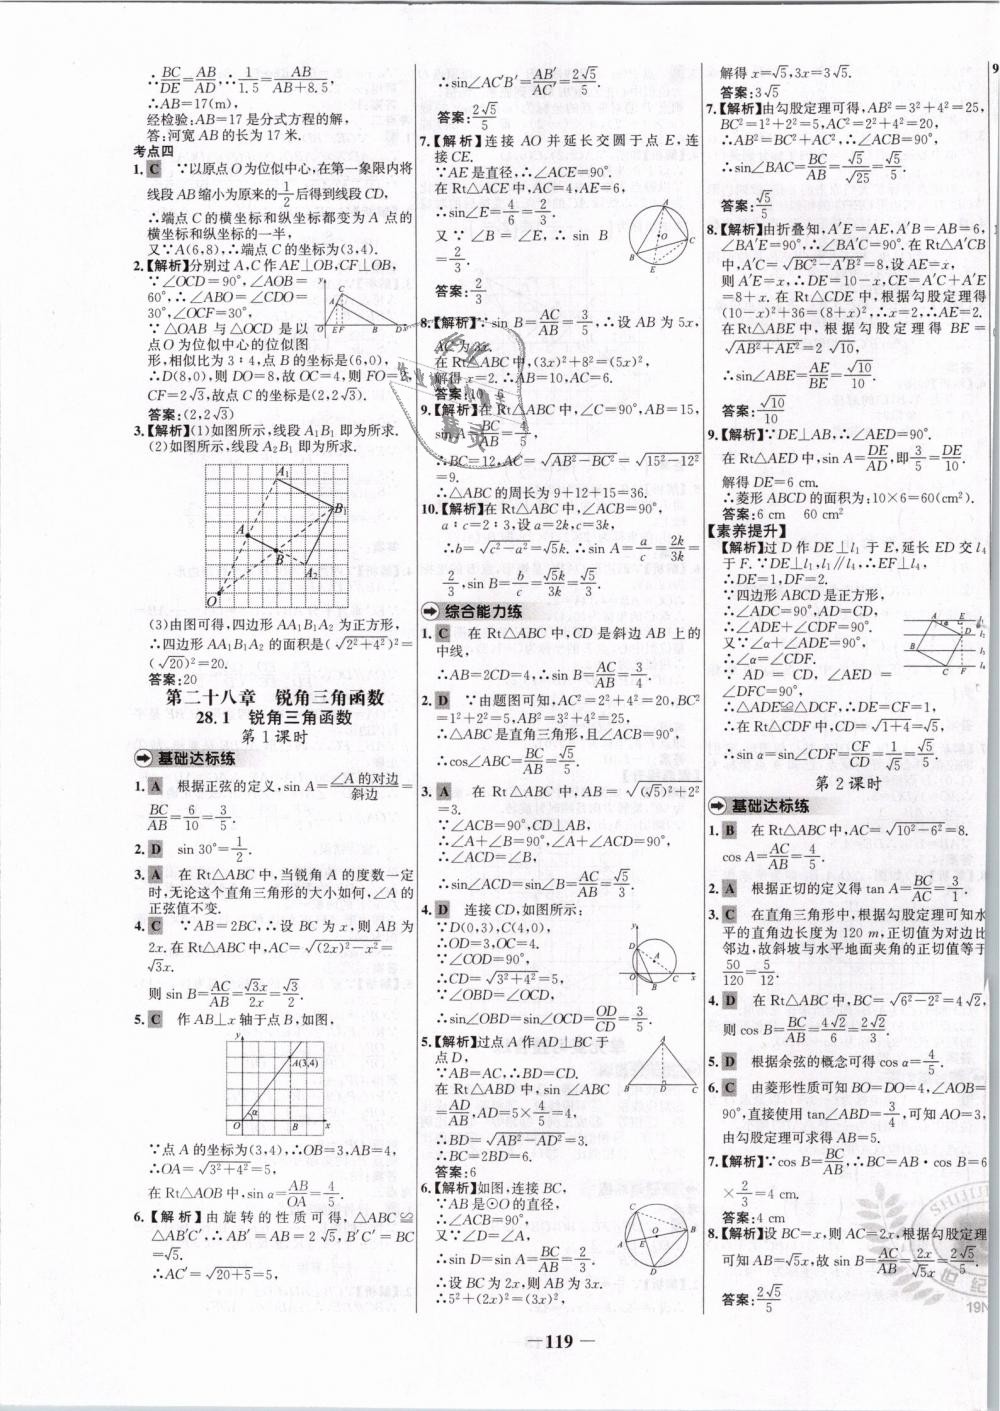 ∴BC/DE=AB/AD,∴1/1.5=AB/(AB+8.5),
∴AB=17(m),
经检验:AB=17是分式方程的解,
答:河宽AB的长为17米.
考点四
1. C ∵以原点O为位似中心,在第一象限内将
线段AB缩小为原来的1/2后得到线段CD,
∴端点C的横坐标和纵坐标都变为A点的
横坐标和纵坐标的一半,
又∵A(6,8),∴端点C的坐标为(3,4).
2.【解析】分别过A,C作AE⊥OB,CF⊥OB,
∵∠OCD=90°,∠AOB=
60°,∴∠ABO=∠CDO=
30°,∠OCF=30°,
∵△OAB与△OCD是以
点O为位似中心的位似图
形,相似比为3∶4,点B的坐标是(6,0),
∴D(8,0),则DO=8,故OC=4,则FO=2,
CF=2√3,故点C的坐标是(2,2√3).
答案:(2,2√3)
3.【解析】(1)如图所示,线段A₁B₁即为所求.
(2)如图所示,线段A₂B₁即为所求.
A₁
A
B₁
B
A₂
O
(3)由图可得,四边形AA₁B₁A₂为正方形,
∴四边形AA₁B₁A₂的面积是(√(2²+4²))²=
(√20)²=20.
答案:20
第二十八章 锐角三角函数
28.1 锐角三角函数
第1课时
基础达标练
1. A 根据正弦的定义,sin A=∠A的对边/斜边=
BC/AB=6/10=3/5.
2. D sin 30°=1/2.
3. A 在Rt△ABC中,当锐角A的度数一定
时,无论这个直角三角形的大小如何,∠A的
正弦值不变.
4. C ∵AB=2BC,∴设BC为x,则AB为
2x.在Rt△ABC中,AC=√((2x)²-x²)=
√3x.
则sin B=AC/AB=√3x/2x=√3/2.
5. C 作AB⊥x轴于点B,如图,
y
A(3,4)
α
O B x
∵点A的坐标为(3,4),∴OB=3,AB=4,
∴OA=√(3²+4²)=5,
在Rt△AOB中,sin α=AB/OA=4/5.
6.【解析】由旋转的性质可得,△ABC≌
△AB′C′,∴AB′=AB=2√5,B′C′=BC
=√5.
∴AC′=√(20+5)=5,
∴sin∠AC′B′=AB′/AC′=2√5/5.
答案:2√5/5
7.【解析】连接AO并延长交圆于点E,连
接CE.
∵AE是直径,∴∠ACE=90°.
在Rt△ACE中,AC=4,AE=6,
∴sin∠E=4/6=2/3.
又∵∠B=∠E,∴sin B
=2/3.
答案:2/3
8.【解析】∵sin B=AC/AB=3/5,∴设AB为5x,
AC为3x.
在Rt△ABC中,(3x)²+8²=(5x)²,
解得x=2.∴AB=10,AC=6.
答案:10 6
9.【解析】在Rt△ABC中,∠C=90°,AB=15,
sin A=BC/AB=4/5,
∴BC=12,AC=√(AB²-BC²)=√(15²-12²)
=9.
∴△ABC的周长为9+12+15=36.
10.【解析】在Rt△ABC中,∠ACB=90°,
a∶c=2∶3,设a=2k,c=3k,
∴b=√(c²-a²)=√5k.∴sin A=a/c=2k/3k=
2/3,sin B=b/c=√5k/3k=√5/3.
综合能力练
1. C 在Rt△ABC中,CD是斜边AB上的
中线,
∴AB=2CD=4,∴sin B=AC/AB=3/4.
2. D ∵由题图可知,AC²=2²+4²=20,BC²
=1²+2²=5,AB²=3²+4²=25,
∴△ABC是直角三角形,且∠ACB=90°,
∴cos∠ABC=BC/AB=√5/5.
3. A 在Rt△ABC中,AB=√((√5)²+2²)
=3.
∵∠ACB=90°,CD⊥AB,
∴∠A+∠B=90°,∠A+∠ACD=90°,
∴∠ACD=∠B,
∴sin∠ACD=sin∠B=AC/AB=√5/3.
4. D 连接CD,如图所示:
∵D(0,3),C(4,0),
∴OD=3,OC=4.
∵∠COD=90°,
∴CD=√(3²+4²)=5,
∵∠OBD=∠OCD,
∴sin∠OBD=sin∠OCD=OD/CD=3/5.
5.【解析】过点A作AD⊥BC于
点D,
∵AB=AC,∴BD=CD.
在Rt△ABD中,sin∠ABC
=AD/AB,AD=5×4/5=4,
∴BD=√(AB²-AD²)=3.
∴BC=2BD=6.
答案:6
6.【解析】如图,连接BC,
∵AB是⊙O的直径,
∴∠ACB=90°,
又∵∠D=∠A,
∴sin D=sin A=BC/AB=2/3.
∴设BC为2x,则AB为3x.
∴5²+(2x)²=(3x)²,
解得x=√5,3x=3√5.
答案:3√5
7.【解析】由勾股定理可得,AB²=3²+4²=25,
BC²=1²+2²=5,AC²=2²+4²=20,
∴AB²=BC²+AC²,∴∠ACB=90°,
∴sin∠BAC=BC/AB=√5/√25=√5/5.
答案:√5/5
8.【解析】由折叠知,A′E=AE,A′B=AB=6,
∠BA′E=90°,∴∠BA′C=90°.在Rt△A′CB
中,A′C=√(BC²-A′B²)=8,设AE=x,
则A′E=x,∴DE=10-x,CE=A′C+A′E
=8+x.在Rt△CDE中,根据勾股定理得
(10-x)²+36=(8+x)²,∴x=2,∴AE=2.
在Rt△ABE中,根据勾股定理得BE=
√(AB²+AE²)=2√10,
∴sin∠ABE=AE/BE=√10/10.
答案:√10/10
9.【解析】∵DE⊥AB,∴∠AED=90°.
在Rt△AED中,sin A=DE/AD,即3/5=DE/10.
解得DE=6 cm.
∴菱形ABCD的面积为:10×6=60(cm²).
答案:6 cm 60 cm²
【素养提升】
【解析】过D作DE⊥l₁于E,延长ED交l₄
于F.∵DE⊥l₁,l₁∥l₄,∴EF⊥l₄,
∴DE=1,DF=2.
∵四边形ABCD是正方形,
∴∠ADC=90°,AD=CD,
∴∠ADE+∠CDF=90°.
又∵∠α+∠ADE=90°,
∴∠α=∠CDF.
∵AD=CD,∠AED=
∠DFC=90°,
∴△ADE≌△DCF,∴DE=CF=1,
∴在Rt△CDF中,CD=√(1+4)=√5,
∴sin α=sin∠CDF=CF/CD=1/√5=√5/5.
第2课时
基础达标练
1. B 在Rt△ABC中,AC=√(10²-6²)=8.
cos A=AC/AB=4/5.
2. A 根据正切的定义得tan A=BC/AC=3/1.
3. C 在直角三角形中,根据勾股定理可知水
平的直角边长度为120 m,正切值为对边比
邻边,故斜坡与水平地面夹角的正切值等于
50/120=5/12.
4. D 在Rt△ABC中,BC=√(6²-2²)=4√2,
则cos B=BC/AB=4√2/6=2√2/3.
5. D 根据余弦的概念可得cos α=4/5.
6. C 由菱形性质可知BO=DO=4,∠AOB=
90°,直接使用tan∠ABD=3/4,可知AO=3,
由勾股定理可求得AB=5.
7.【解析】∵cos B=BC/AB,∴BC=AB·cos B=6
×2/3=4 cm.
答案:4 cm
8.【解析】设BC=x,则AC=2x,根据勾股定理
可知AB=√5x,故sin B=AC/AB=2x/√5x=2√5/5.
答案:2√5/5
— 119 —